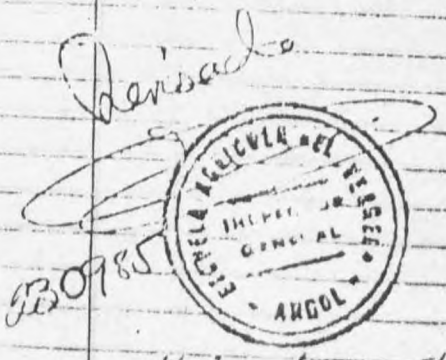 Revisado
ESCUELA AGRICOLA "EL VERGEL"
INSPECTOR
GENERAL
* ANGOL *
230985